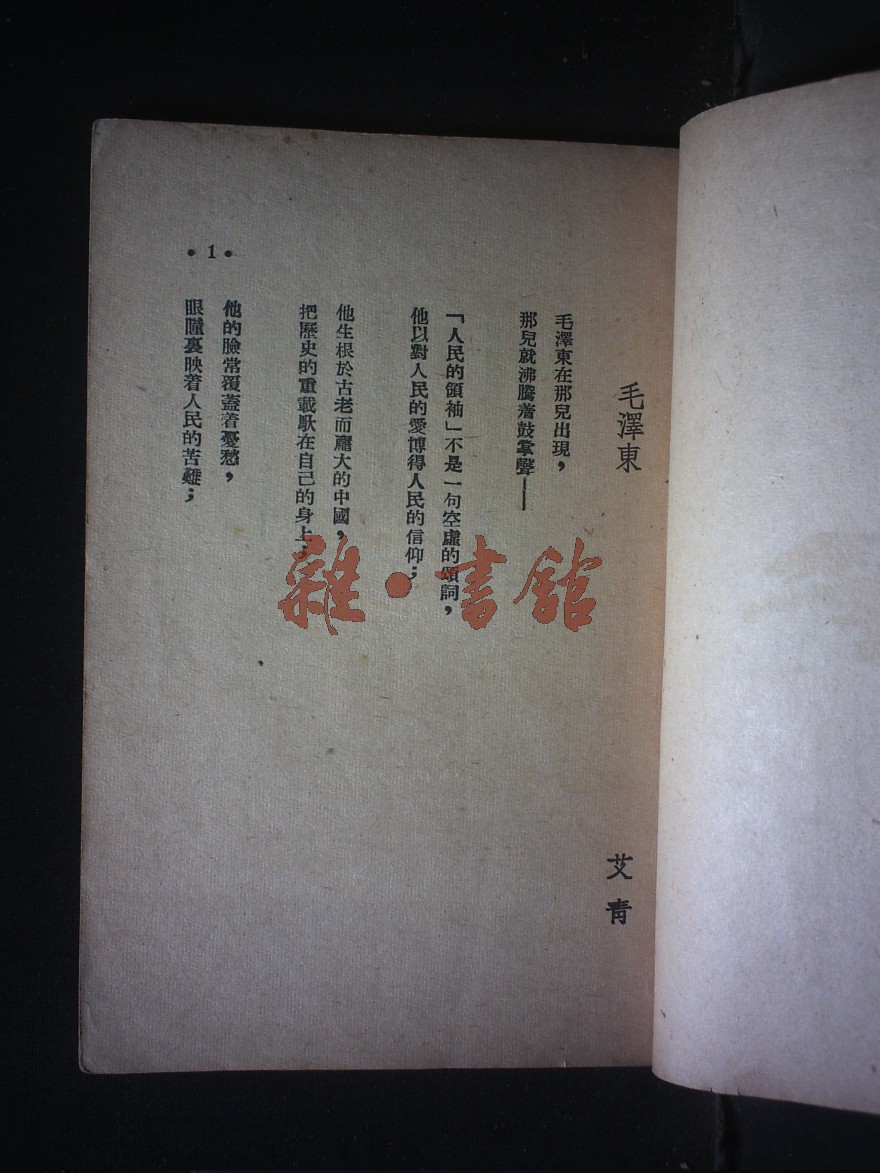 毛澤東
艾青
毛澤東在那兒出現，
那兒就沸騰着鼓掌聲——
「人民的領袖」不是一句空虛的頌詞，
他以對人民的愛博得人民的信仰；
他生根於古老而龐大的中國，
把歷史的重載馱在自己的身上；
他的臉常覆蓋着憂愁，
眼瞳裏映着人民的苦難；
•1•
雜·書館